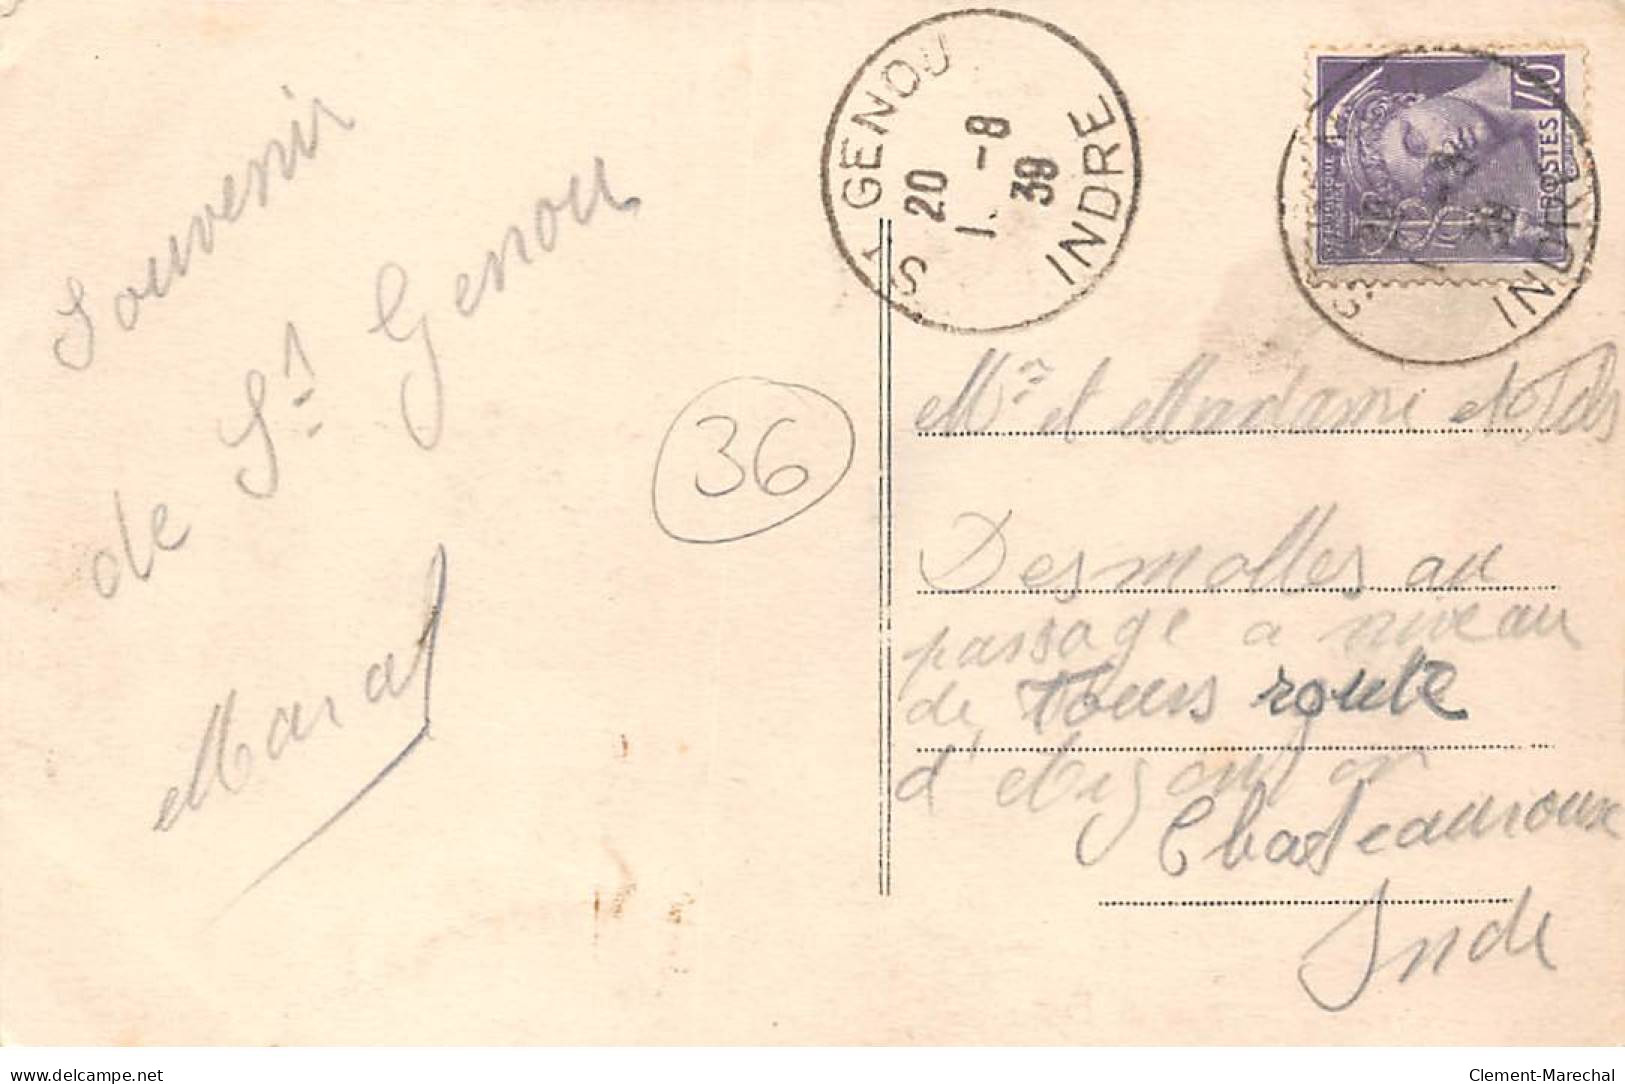 Souvenir
de St Genou
Marcal
36
ST GENOU
20 -8
1. 39
INDRE
40
POSTES
INDRE
Mr et Madame
Desmolles au
passage a niveau
de Tours route
d'
Chateauroux
Indre
www.delcampe.net
Clement-Marechal